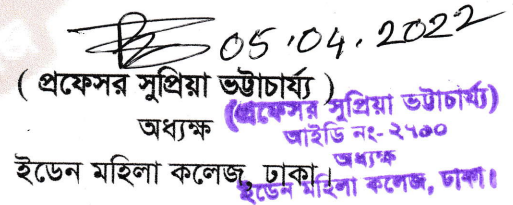 05.04.2022
( প্রফেসর সুপ্রিয়া ভট্টাচার্য্য )
অধ্যক্ষ
ইডেন মহিলা কলেজ, ঢাকা।
(প্রফেসর সুপ্রিয়া ভট্টাচার্য্য)
আইডি নং- ২৭০০
অধ্যক্ষ
ইডেন মহিলা কলেজ, ঢাকা।